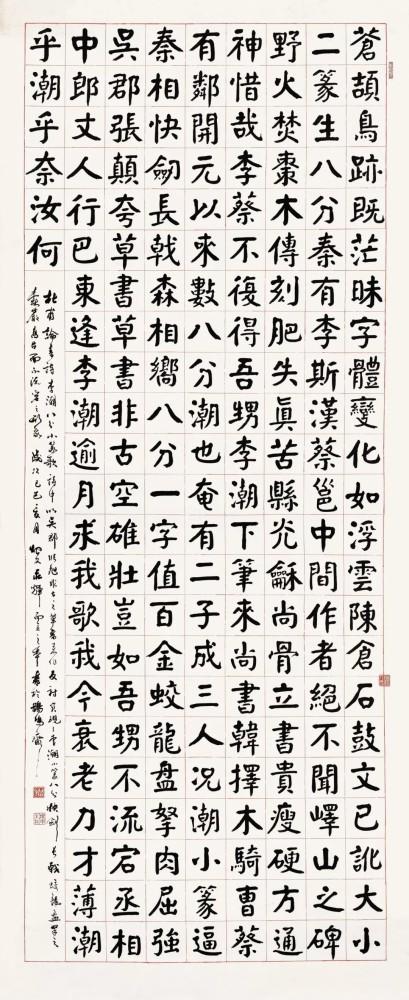 蒼頡鳥跡既茫昧字體變化如浮雲陳倉石鼓文已訛大小
二篆生八分秦有李斯漢蔡邕中間作者絕不聞嶧山之碑
野火焚棗木傳刻肥失眞苦縣光龢尚骨立書貴瘦硬方通
神惜哉李蔡不復得吾甥李潮下筆來尚書韓擇木騎曹蔡
有鄰開元以來數八分潮也奄有二子成三人況潮小篆逼
秦相快劒長戟森相嚮八分一字值百金蛟龍盤拏肉屈強
吳郡張顛夸草書草書非古空雄壯豈如吾甥不流宕丞相
中郎丈人行巴東逢李潮逾月求我歌我今衰老力才薄潮
乎潮乎奈汝何
杜甫論書詩李潮八分小篆歌詩中以吳郡張旭
而不流宕之形象歲次己巳